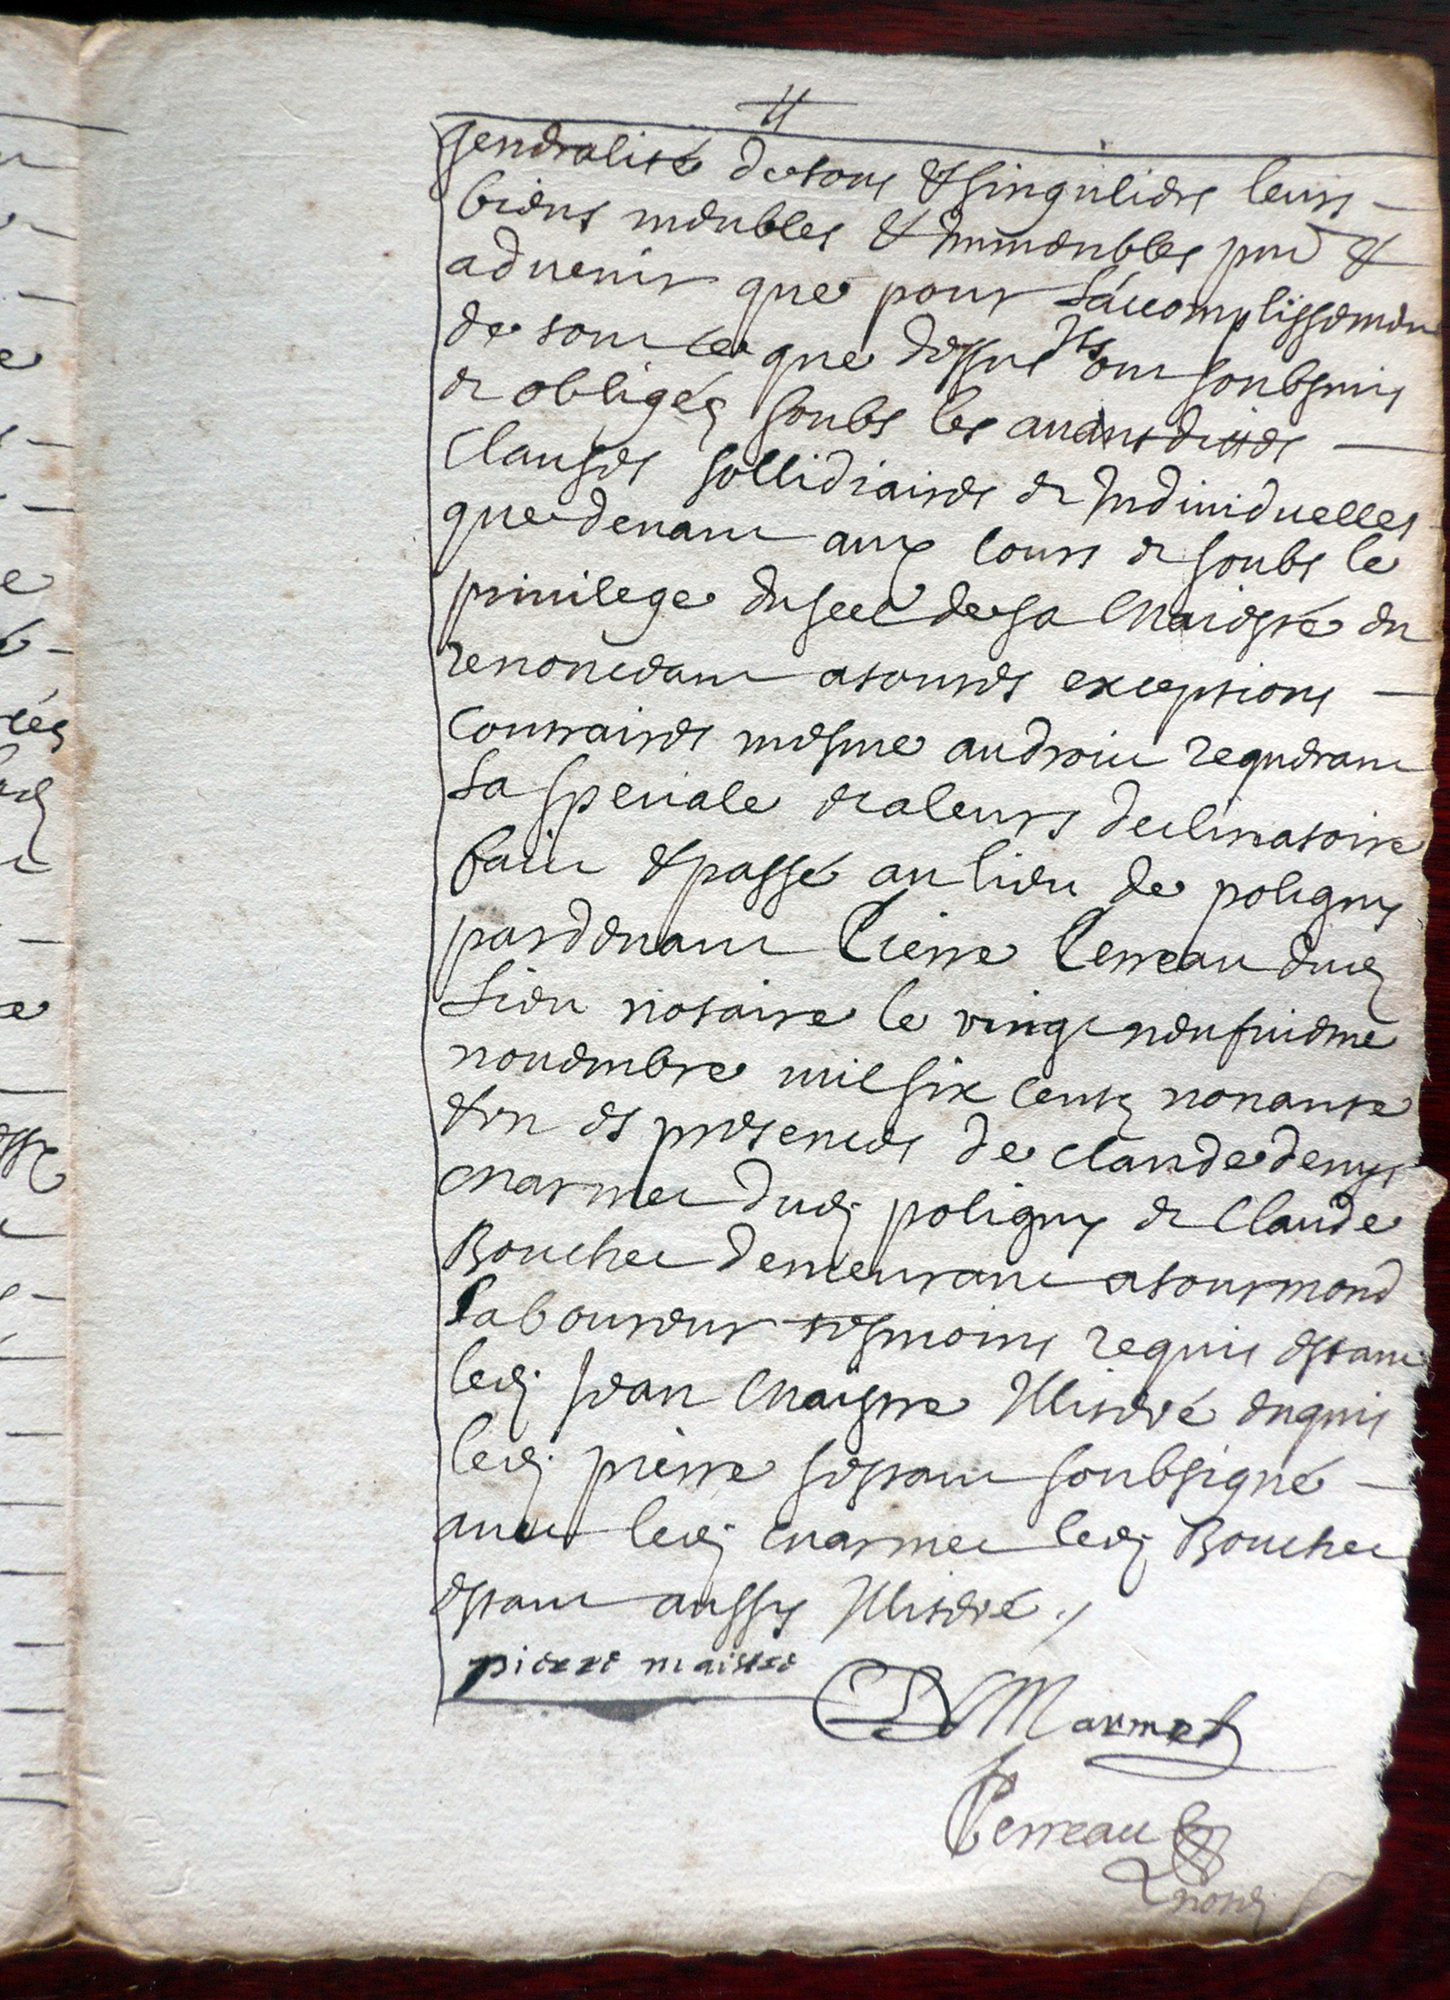 generalité de tous & singuliers leurs
biens meubles & immeubles pnt &
aduenir que pour l'accomplissement
de tout ce que dessus ils ont soubsmis
et obligés soubs les auantdittes
clauses sollidiaires et indiuiduelles
que deuant aux cours et soubs le
priuilege du seel de sa Maiesté en
renonceant a toutes exceptions
contraires mesme au droit requerant
la speciale et a leurs declinatoire
fait & passé au lieu de poligny
pardeuant Pierre Perreau dud
lieu notaire le vingt neufuieme
nouembre mil six cents nonante
& vn es presences de claude denys
Marmet dud. poligny et Claude
Bouchet demeurant a tourmond
laboureur tesmoins requis estant
led. Jean Maistre Illiteré enquis
led. pierre sestant soubsigné
auec led. Marmet led. Bouchet
estant aussy Illiteré ./
pierre maistre
CD Marmet
Perreau
not.